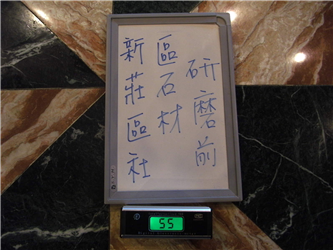 新莊區社
區石材
研磨前
55